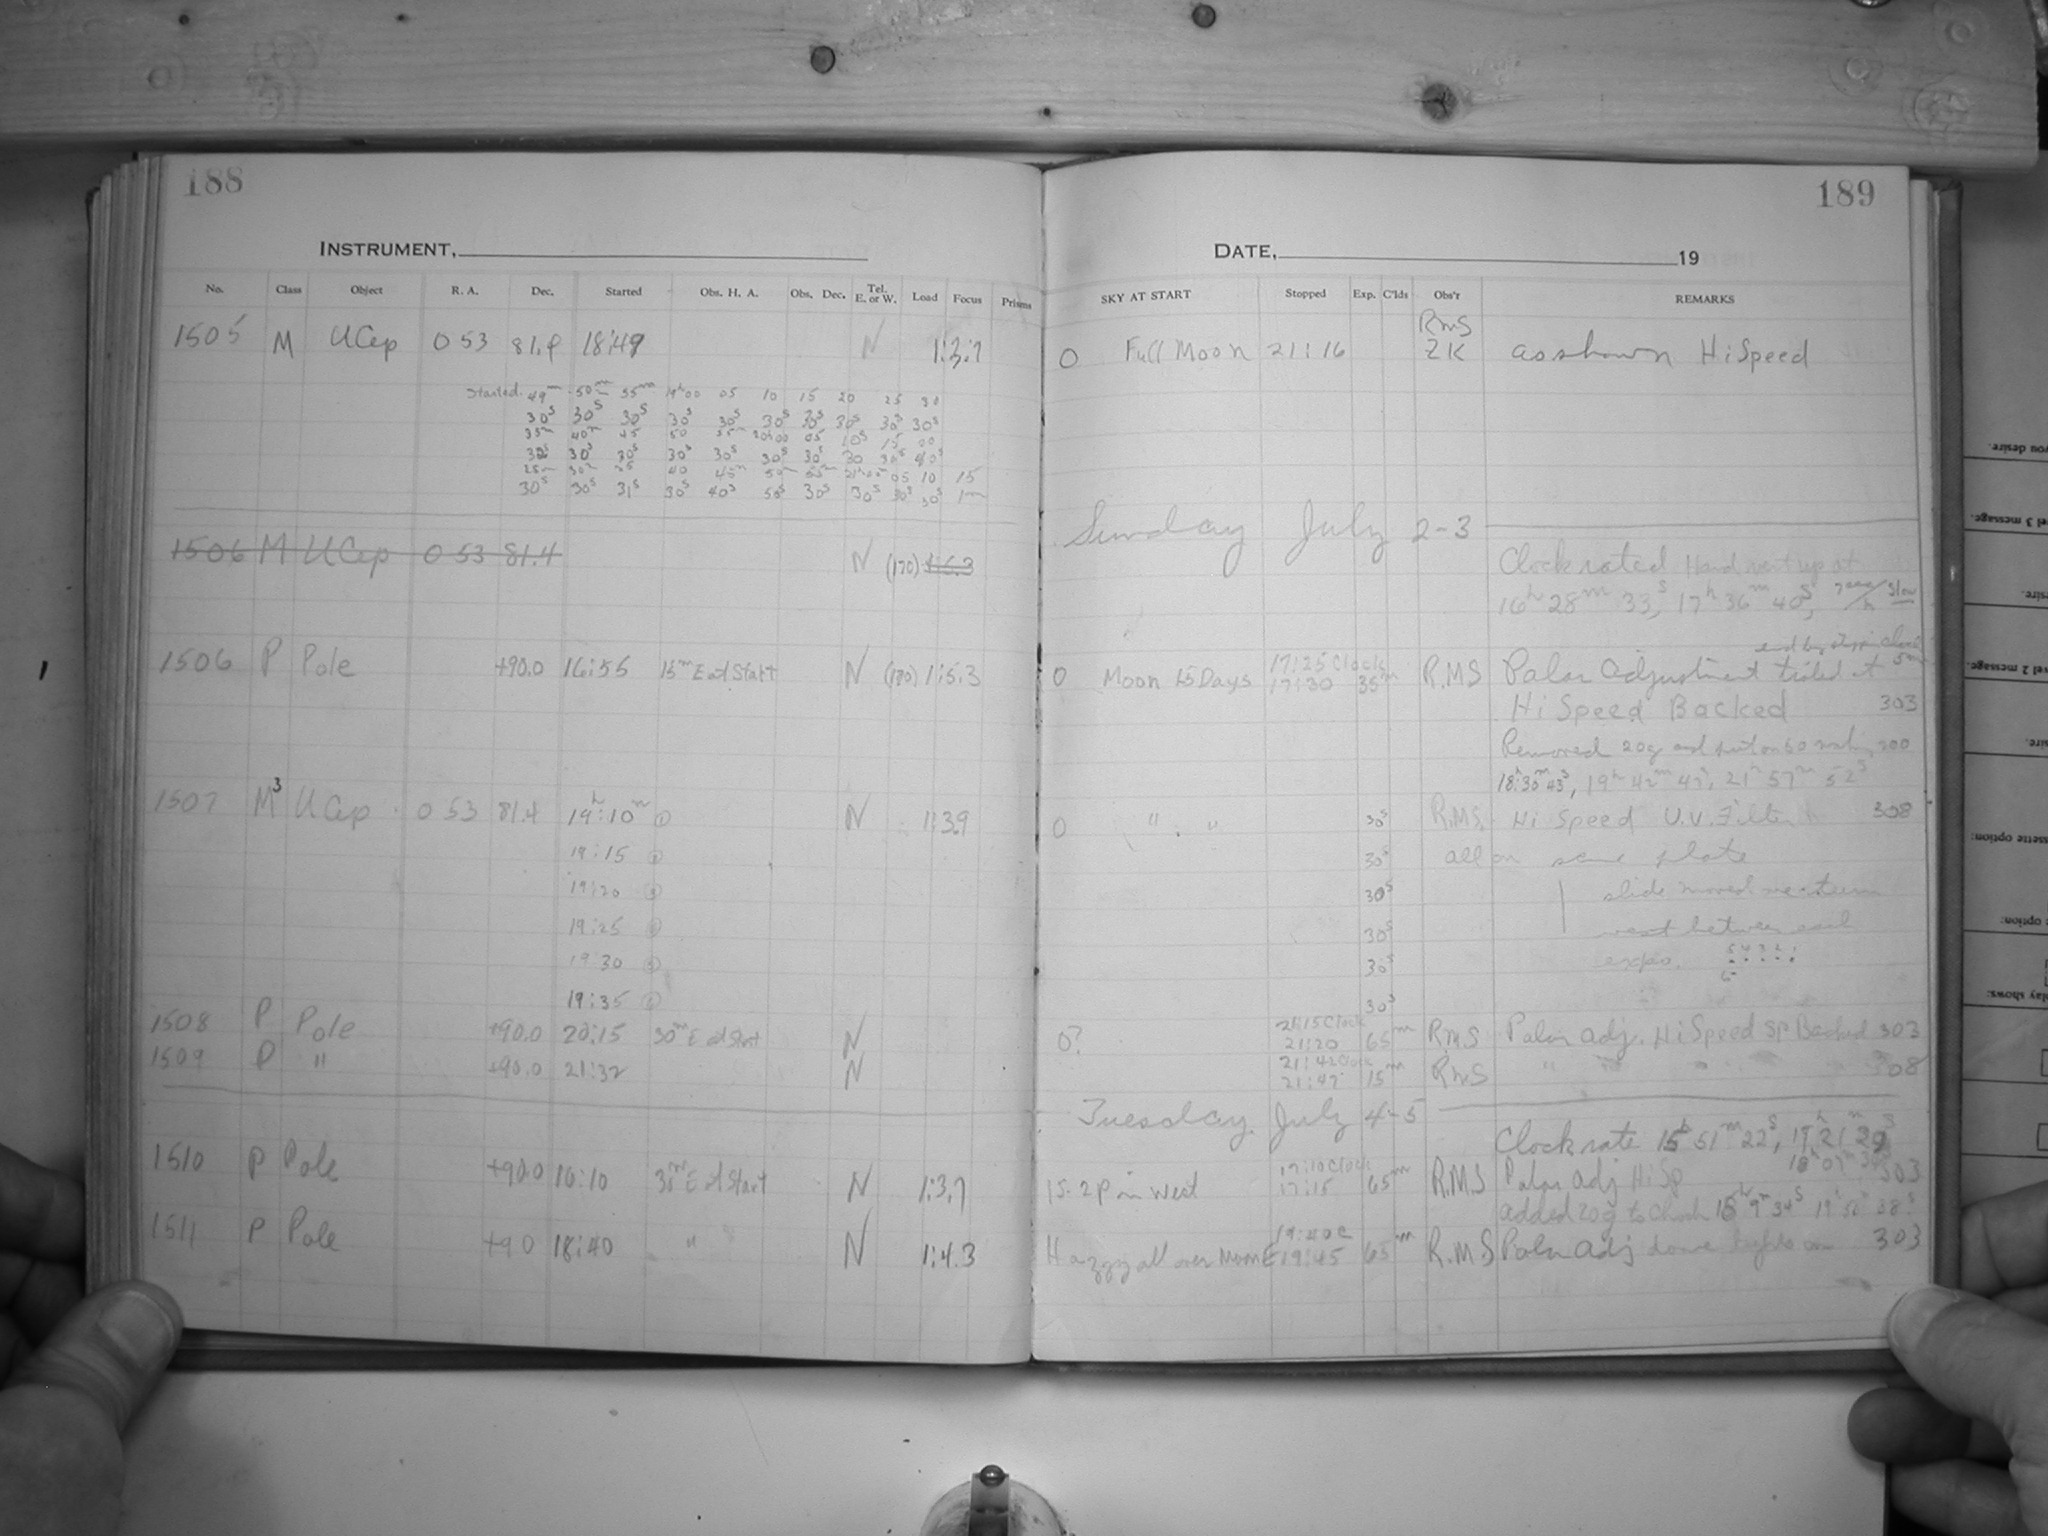 188
INSTRUMENT,
No. Class Object R. A. Dec. Started Obs. H. A. Obs. Dec. Tel. E. or W. Load Focus Prisms
1505 M U Cep 0 53 81.4 18:49 N 1:3:7
Started 49m 50m 55m 19h00 05 10 15 20 25 30
30s 30s 30s 30s 30s 30s 30s 30s 30s 30s
35m 40m 45 50 55m 20h00 05 10s 15
30s 30s 30s 30s 30s 30s 30s 30 30s 40s
25m 30m 35 40 45m 50m 55m 05 10 15
30s 30s 31s 30s 40s 50s 30s 30s 30s 30s 1m
1506 M U Cep 0 53 81.4 N (170)
1506 P Pole +90.0 16:55 15m E at Start N (170) 1:5.3
1507 M3 U Cep 0 53 81.4 19h:10m 1 N 1:3.9
19:15
19:20
19:25
19:30
19:35
1508 P Pole +90.0 20:15 30m E at Start N
1509 P " +90.0 21:32 N
1510 P Pole +90.0 16:10 E at Start N 1:3.7
1511 P Pole +90 18:40 " N 1:4.3
189
DATE, 19
SKY AT START Stopped Exp. C'lds Obs'r REMARKS
RMS
0 Full Moon 21:16 ZK as shown Hi Speed
Sunday July 2-3
Clock rated Hand went up at
16h 28m 33s, 17h 36m 40s, 7sec/h Slow
0 Moon 15 Days 17:25 Clock 17:30 35m R.M.S Polar Adjustment
Hi Speed Backed 303
Removed 20g and put on 50
18h:30m 43s, 19h 42m 42s, 21h 57m 52s
0 " " 30s R.M.S. Hi Speed U.V. Filter 308
30s all on same plate
30s slide moved
30s west between each
30s expo. 5 4 3 2 1
30s 6
0? 21:15 Clock 21:20 65m RMS Polar Adj. Hi Speed Sp Backed 303
21:42 Clock 21:47 15m RMS " " " " 308
Tuesday July 4-5
Clock rate 15h 51m 22s, 19h 21m 29s
15.2P in West 17:10 Clock 17:15 65m R.M.S Polar Adj Hi Sp 303
added 20g to Clock
Hazy all over Moon E 19:40c 19:45 65m R.M.S Polar Adj dome lights on 303
you desire.
el 3 message.
sire.
el 2 message.
sire.
ssette option:
e option:
play shows: